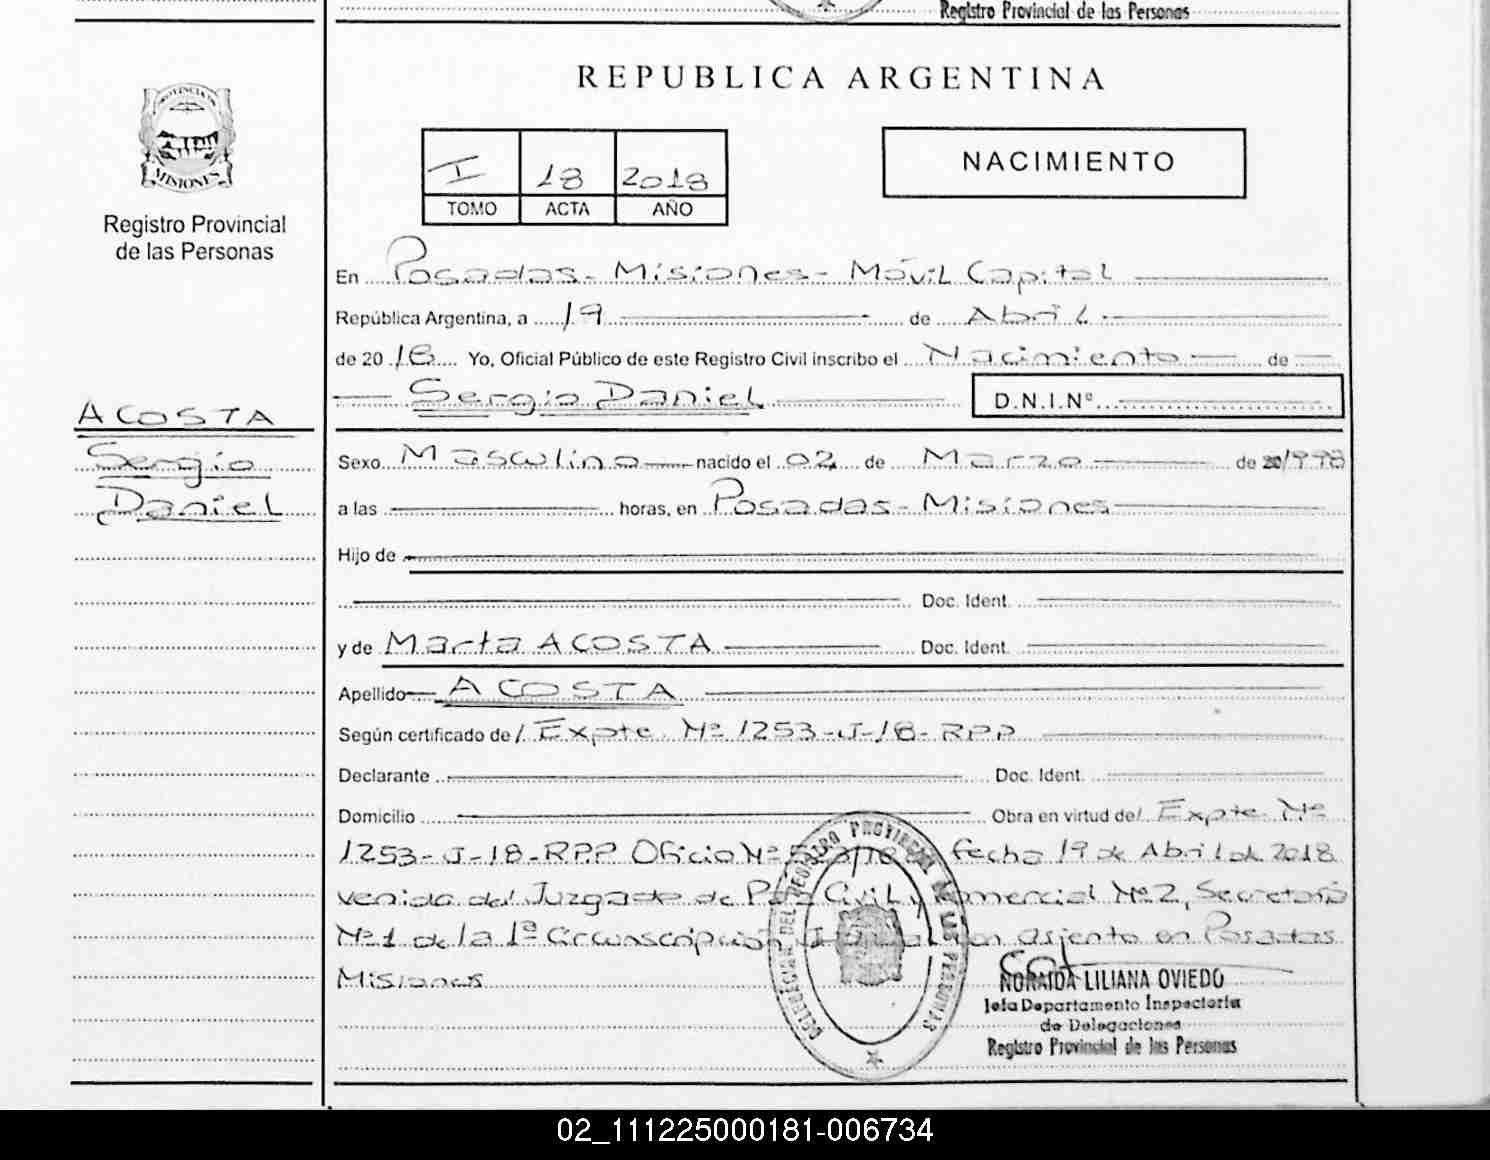 Registro Provincial de las Personas
PROVINCIA DE
MISIONES
Registro Provincial
de las Personas
REPUBLICA ARGENTINA
I 18 2018
TOMO ACTA AÑO
NACIMIENTO
En Posadas - Misiones - Móvil Capital
República Argentina, a 19 de Abril
de 20 18 Yo, Oficial Público de este Registro Civil inscribo el Nacimiento de
Sergio Daniel D.N.I.Nº
ACOSTA
Sergio
Daniel
Sexo Masculino nacido el 02 de Marzo de 20 1998
a las horas, en Posadas - Misiones
Hijo de
Doc. Ident.
y de Marta ACOSTA Doc. Ident.
Apellido ACOSTA
Según certificado de / Expte. Nº 1253-J-18-RPP
Declarante Doc. Ident.
Domicilio Obra en virtud de / Expte Nº
1253-J-18-RPP Oficio Nº fecha 19 de Abril de 2018
venido del Juzgado de Paz Civil y Comercial Nº 2, Secretaría
Nº 1 de la 1ª Circunscripción con asiento en Posadas
Misiones
DELEGACION DEL REGISTRO PROVINCIAL DE LAS PERSONAS
NORAIDA LILIANA OVIEDO
Jefa Departamento Inspectoría
de Delegaciones
Registro Provincial de las Personas
02_111225000181-006734